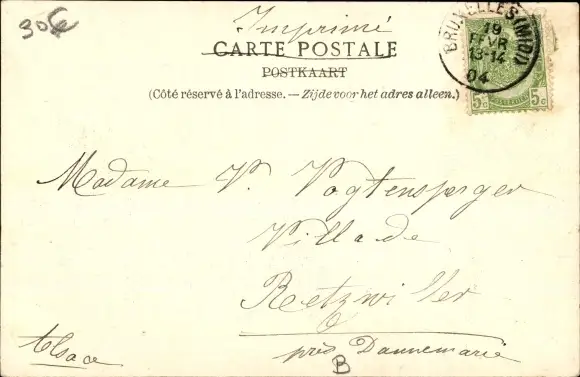 30€
Imprimé
CARTE POSTALE
POSTKAART
(Côté réservé à l'adresse. — Zijde voor het adres alleen.)
BRUXELLES (MIDI)
19
FEVR
13-14
04
5c 5c
Madame V. Vogtensperger
Villa de
Retzwiller
près Dannemarie
Alsace
B